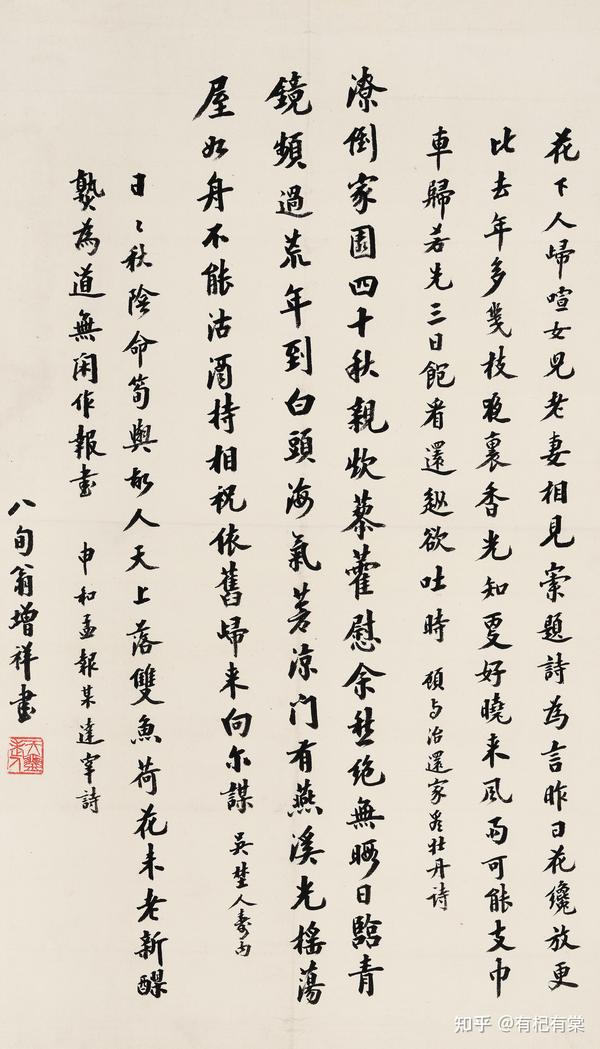 花下人歸喧女兒老妻相見索題詩為言昨日花纔放更
比去年多幾枝夜裏香光知更好曉來風雨可能支巾
車歸若先三日飽看還趂欲吐時 顧與治還家看牡丹詩
潦倒家園四十秋親炊藜藿慰余愁絕無暇日臨青
鏡頻過荒年到白頭海氣荒涼门有燕溪光搖蕩
屋如舟不能沽酒持相祝依舊歸来向尔謀 吳埜人壽内
日〻秋陰命筍輿故人天上落雙魚荷花未老新醅
熟為道無閑作報書 申和孟報某達宰詩
八旬翁增祥書
知乎 @有杞有棠